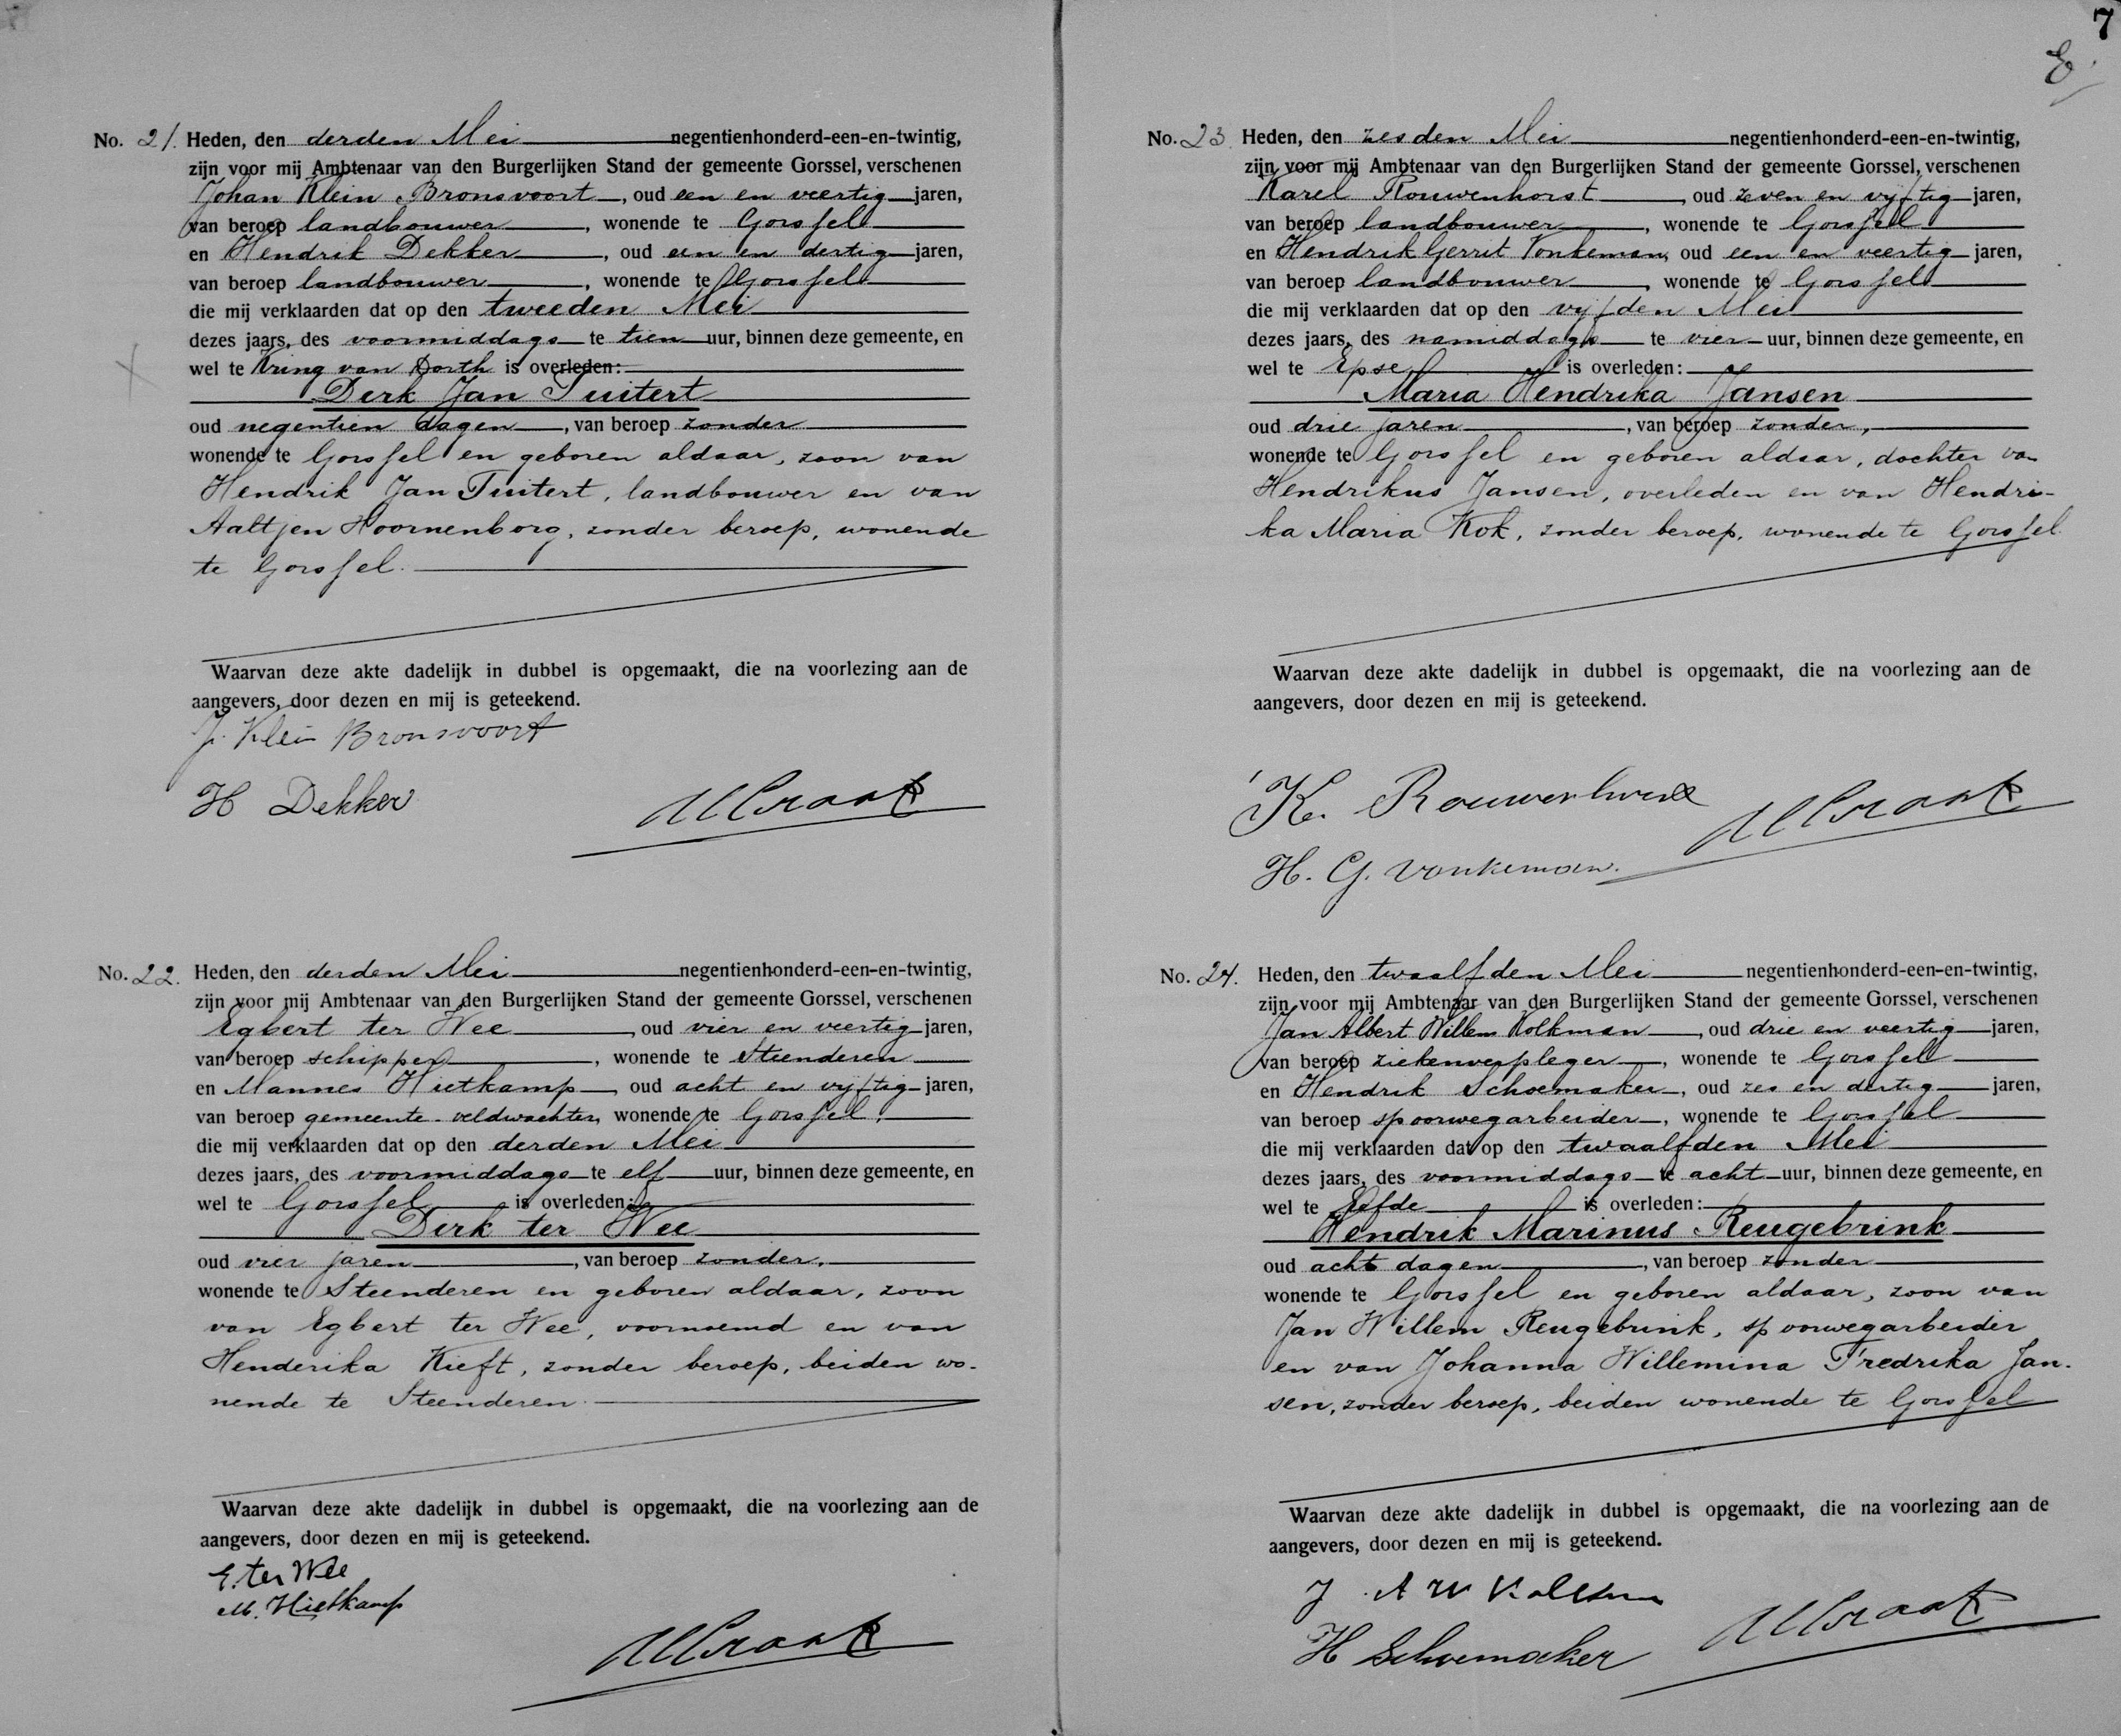 No. 21. Heden, den derden Mei negentienhonderd-een-en-twintig,
zijn voor mij Ambtenaar van den Burgerlijken Stand der gemeente Gorssel, verschenen
Johan Klein Bronsvoort, oud een en veertig jaren,
van beroep landbouwer, wonende te Gorssel
en Hendrik Dekker, oud een en dertig jaren,
van beroep landbouwer, wonende te Gorssel
die mij verklaarden dat op den tweeden Mei
dezes jaars, des voormiddags te tien uur, binnen deze gemeente, en
wel te Kring van Dorth is overleden:
Derk Jan Tuitert
oud negentien dagen, van beroep zonder
wonende te Gorssel en geboren aldaar, zoon van
Hendrik Jan Tuitert, landbouwer en van
Aaltjen Hoornenborg, zonder beroep, wonende
te Gorssel.
Waarvan deze akte dadelijk in dubbel is opgemaakt, die na voorlezing aan de
aangevers, door dezen en mij is geteekend.
J. Klein Bronsvoort
H Dekker
No. 22. Heden, den derden Mei negentienhonderd-een-en-twintig,
zijn voor mij Ambtenaar van den Burgerlijken Stand der gemeente Gorssel, verschenen
Egbert ter Wee, oud vier en veertig jaren,
van beroep schipper, wonende te Steenderen
en Mannes Hietkamp, oud acht en vijftig jaren,
van beroep gemeente-veldwachter, wonende te Gorssel,
die mij verklaarden dat op den derden Mei
dezes jaars, des voormiddags te elf uur, binnen deze gemeente, en
wel te Gorssel is overleden:
Derk ter Wee
oud vier jaren, van beroep zonder,
wonende te Steenderen en geboren aldaar, zoon
van Egbert ter Wee, voornoemd en van
Henderika Kieft, zonder beroep, beiden wo-
nende te Steenderen.
Waarvan deze akte dadelijk in dubbel is opgemaakt, die na voorlezing aan de
aangevers, door dezen en mij is geteekend.
E. ter Wee
M. Hietkamp
7
No. 23. Heden, den zesden Mei negentienhonderd-een-en-twintig,
zijn voor mij Ambtenaar van den Burgerlijken Stand der gemeente Gorssel, verschenen
Karel Rouwenhorst, oud zeven en vijftig jaren,
van beroep landbouwer, wonende te Gorssel
en Hendrik Gerrit Vonkeman, oud een en veertig jaren,
van beroep landbouwer, wonende te Gorssel
die mij verklaarden dat op den vijfden Mei
dezes jaars, des namiddags te vier uur, binnen deze gemeente, en
wel te Epse is overleden:
Maria Hendrika Jansen
oud drie jaren, van beroep zonder,
wonende te Gorssel en geboren aldaar, dochter van
Hendrikus Jansen, overleden en van Hendri-
ka Maria Kok, zonder beroep, wonende te Gorssel.
Waarvan deze akte dadelijk in dubbel is opgemaakt, die na voorlezing aan de
aangevers, door dezen en mij is geteekend.
K. Rouwenhorst
H. G. Vonkeman.
No. 24. Heden, den twaalfden Mei negentienhonderd-een-en-twintig,
zijn voor mij Ambtenaar van den Burgerlijken Stand der gemeente Gorssel, verschenen
Jan Albert Willem Kolkman, oud drie en veertig jaren,
van beroep ziekenverpleger, wonende te Gorssel
en Hendrik Schoemaker, oud zes en dertig jaren,
van beroep spoorwegarbeider, wonende te Gorssel
die mij verklaarden dat op den twaalfden Mei
dezes jaars, des voormiddags te acht uur, binnen deze gemeente, en
wel te Eefde is overleden:
Hendrik Marinus Reugebrink
oud acht dagen, van beroep zonder
wonende te Gorssel en geboren aldaar, zoon van
Jan Willem Reugebrink, spoorwegarbeider
en van Johanna Willemina Fredrika Jan-
sen, zonder beroep, beiden wonende te Gorssel
Waarvan deze akte dadelijk in dubbel is opgemaakt, die na voorlezing aan de
aangevers, door dezen en mij is geteekend.
J. A W Kolkman
H Schoemaker